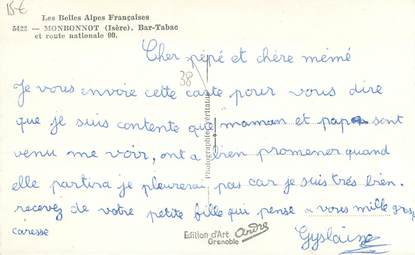 15€
Les Belles Alpes Françaises
5422 — MONBONNOT (Isère), Bar-Tabac
et route nationale 90.
38
Cher pépé et chère mémé
Je vous envoie cette carte pour vous dire
que je suis contente que maman et papa sont
venu me voir, ont a bien promener quand
elle partira je pleurerai pas car je suis très bien.
recevez de votre petite fille qui pense a vous mille gros
caresse
Gyslaine
Photographie véritable
Edition d'Art André
Grenoble